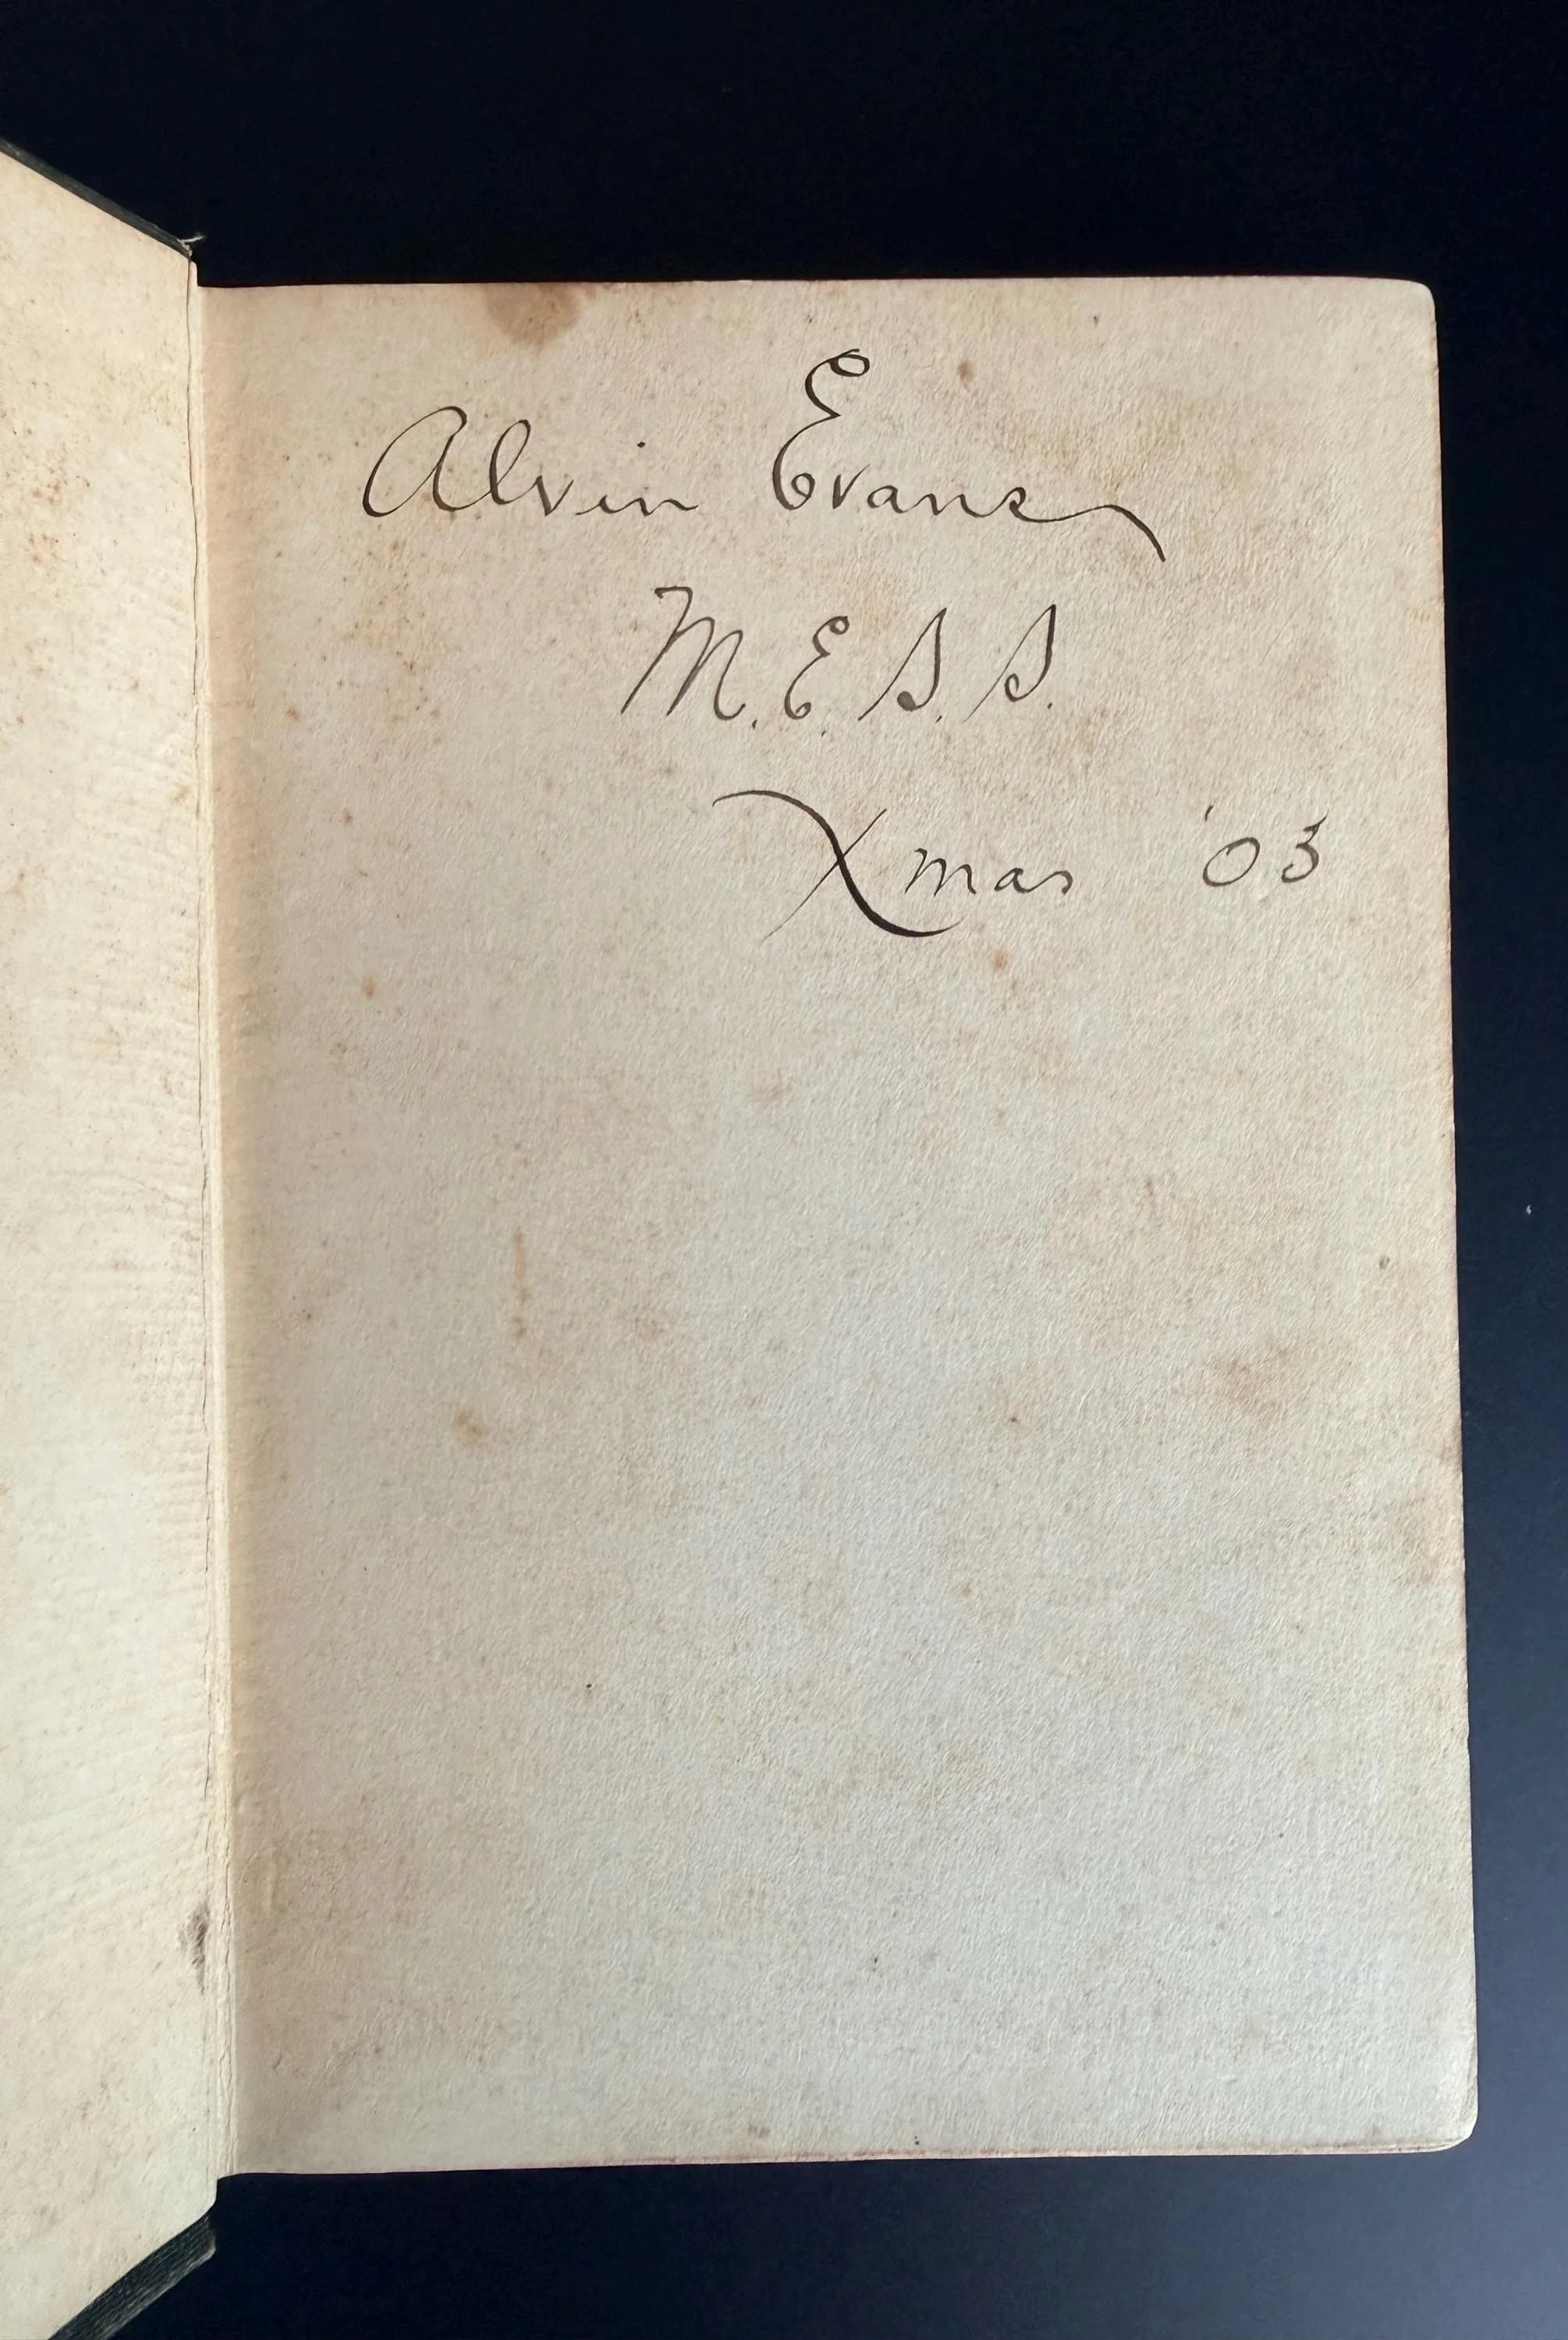 Alvin Evans
M. E. S. S.
Xmas '03